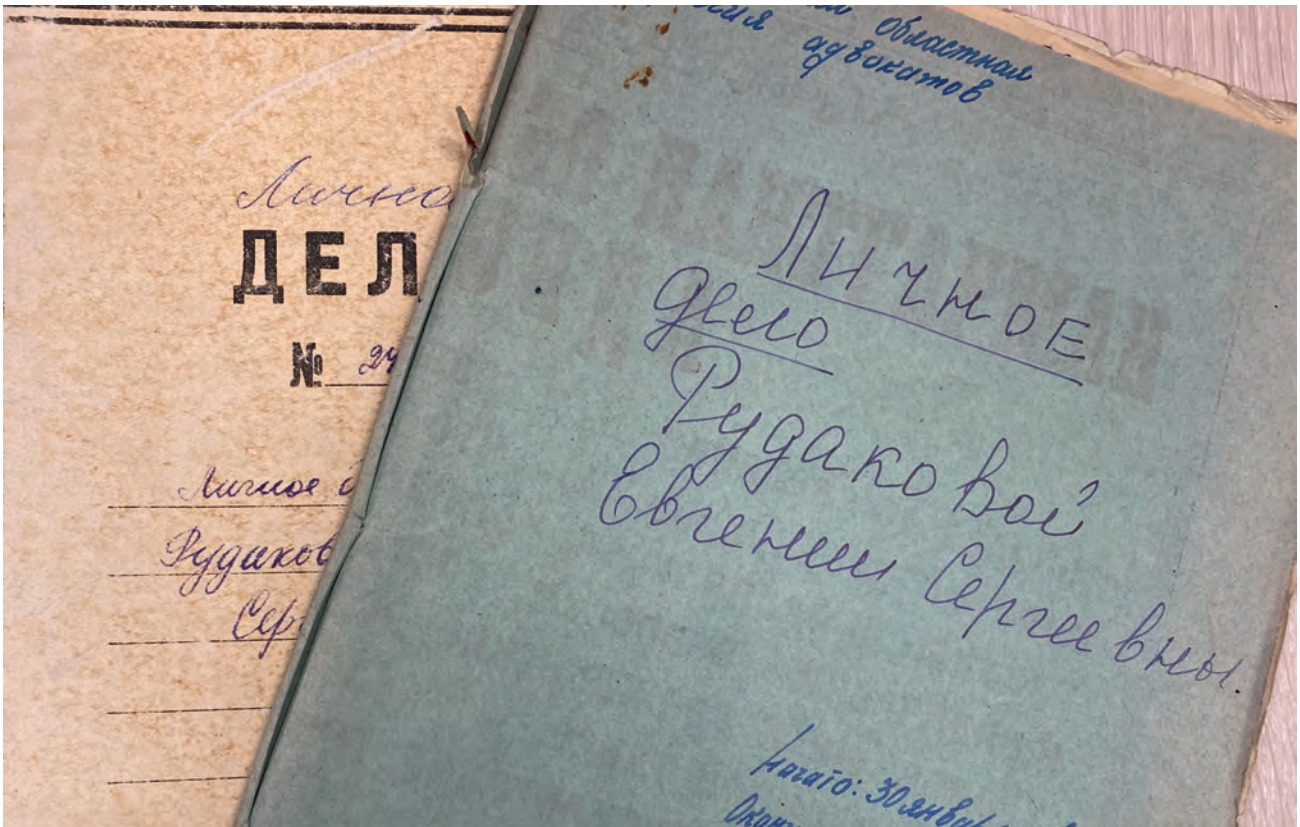 Лично
ДЕЛ
№ 24
Личное д
Рудаков
Сер
областная
адвокатов
Личное
дело
Рудаковой
Евгении Сергеевны.
Начато: 30 янва
Оконч